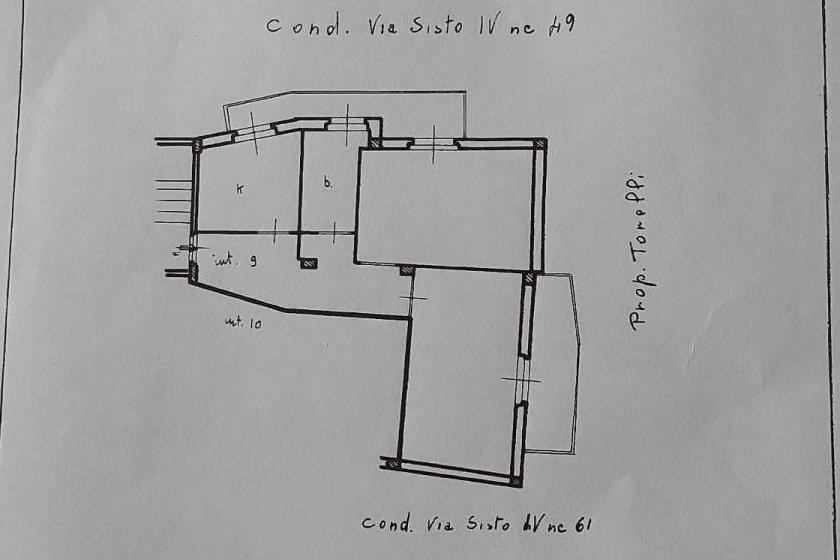 Cond. Via Sisto IV nc 49
k
b.
int. 9
int. 10
Prop. Torelli
Cond. Via Sisto IV nc 61